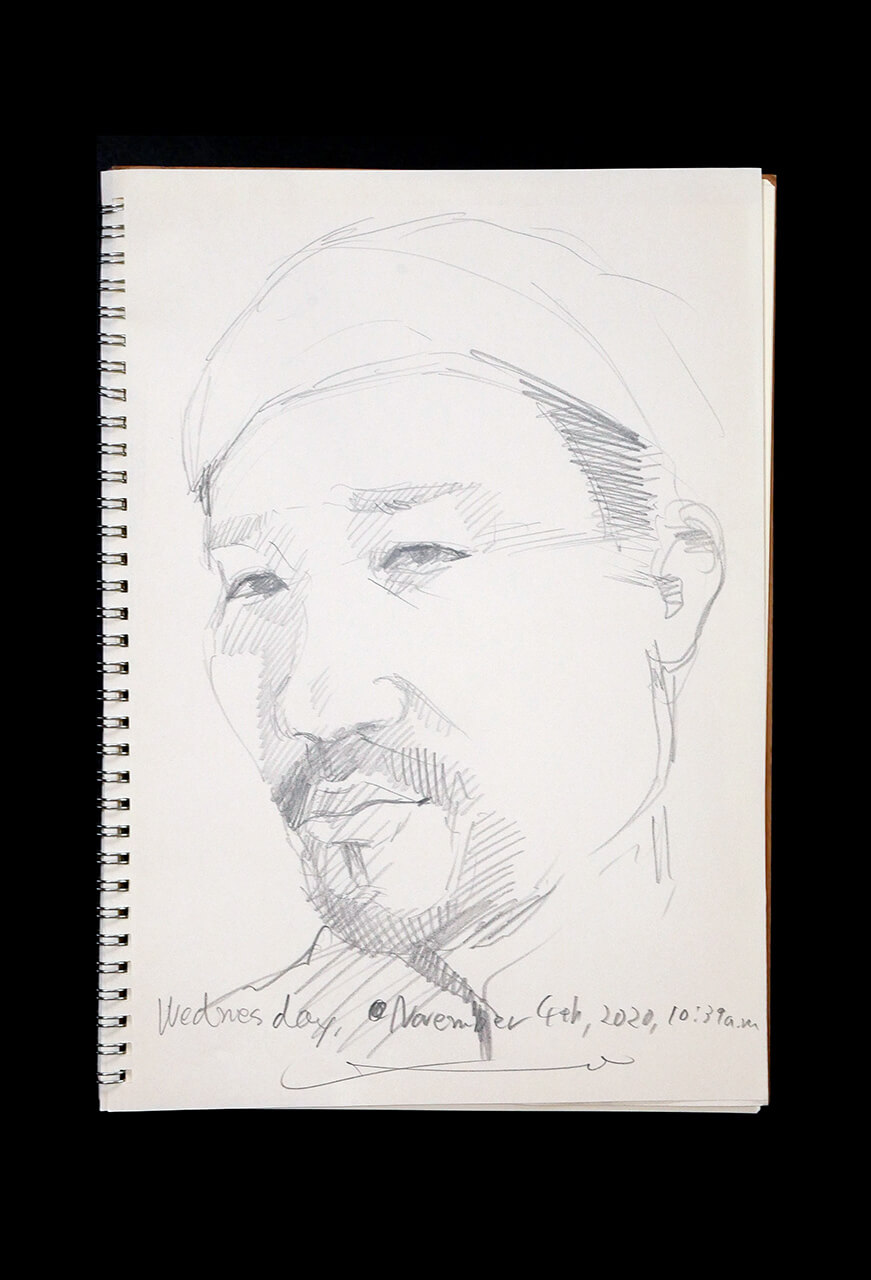 Wednesday, November 4th, 2020, 10:39a.m